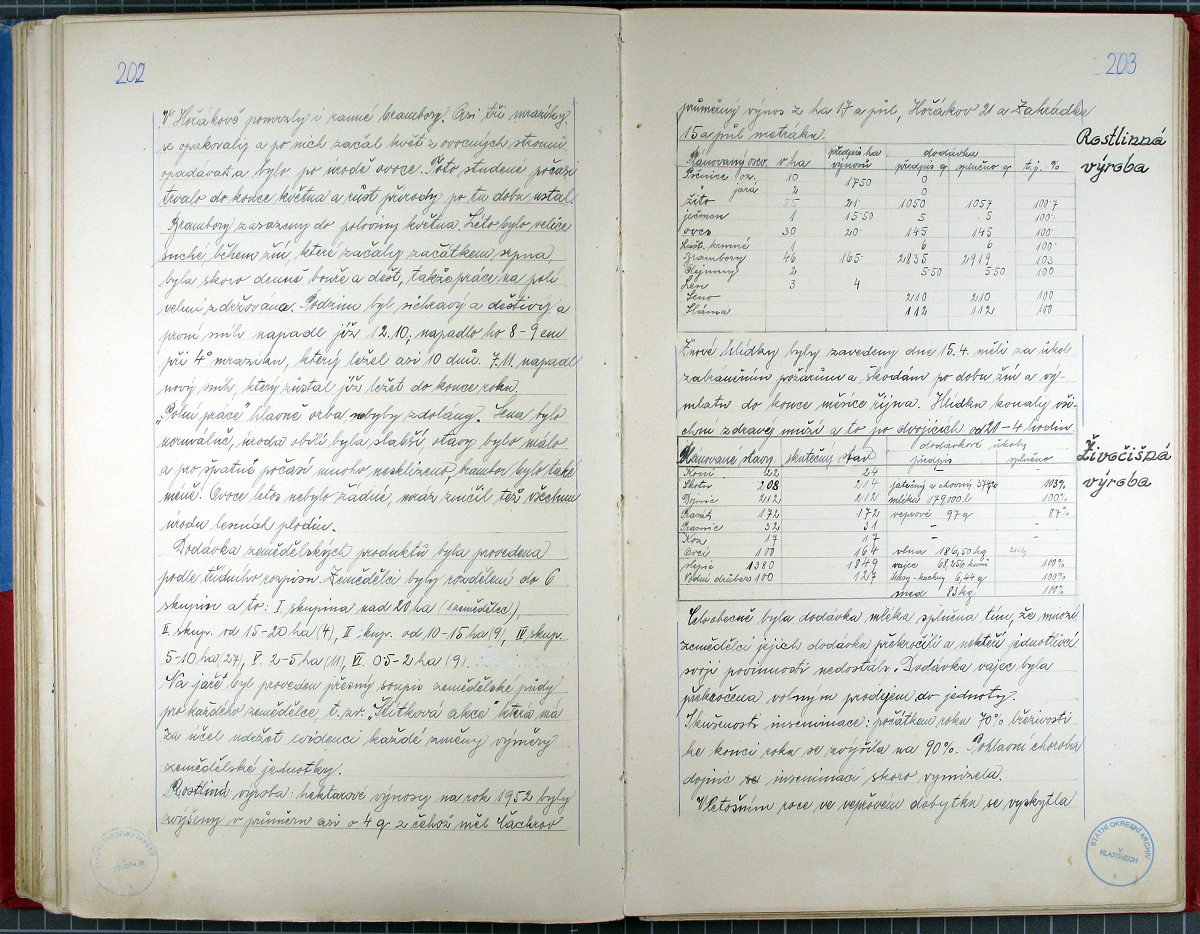 202
V Hořákově pomrzly i ranné brambory. Asi tři mrazíky
se opakovaly a po nich začal květ z ovocných stromů
opadávat a bylo po úrodě ovoce. Toto studené počasí
trvalo do konce května a růst přírody po tu dobu ustal.
Brambory zasazeny do poloviny května. Léto bylo velice
suché, během žní, které začaly začátkem srpna,
byla skoro denně bouře a déšť, takže práce na poli
velmi zdržována. Podzim byl sichravý a deštivý a
první sníh napadl již 12.10; napadlo ho 8-9 cm
při 4° mrazíku, který ležel asi 10 dnů. 7.11. napadl
nový sníh, který zůstal již ležet do konce roku.
"Polní práce" hlavně orba nebyly zdolány. Sena bylo
normálně, úroda obilí byla slabší otavy bylo málo
a pro špatné počasí mnoho nesklizeno, brambor bylo také
méně. Ovoce letos nebylo žádné, mráz zničil též všechnu
úrodu lesních plodin.
Dodávka zemědělských produktů byla provedena
podle třídního rozpisu. Zemědělci byly rozděleni do 6
skupin a to: I. skupina nad 20 ha (1 zemědělec)
II. skup. od 15-20 ha (4), III skup. od 10-15 ha (9), IV skup.
5-10 ha (27), V. 2-5 ha (11), VI. 05-2 ha (9).
Na jaře byl proveden přesný soupis zemědělské půdy
pro každého zemědělce, t. zv. "Lístková akce" která má
za účel udržet evidenci každé změny výměry
zemědělské jednotky.
Rostliná výroba: hektarové výnosy na rok 1952 byly
zvýšeny v průměru asi o 4 q z čehož měl Čachrov
203
průměrný výnos z ha 17 a půl, Hořákov 21 a Zahrádka
15 a půl metráku.
Rostlinná
výroba
Plánovaný osev. v ha předpis ha výnosů dodávka předpis q splněno q t.j. %
Pšenice oz. 10 17 50 0
jará 2 0
žito 55 21 1050 1057 100 7
ječmen 1 15 50 5 5 100
oves 30 20 145 145 100
Lušt. krmné 1 6 6 100
Brambory 46 165 2835 2919 103
Olejniny 2 5 50 5 50 100
Len 3 4
Seno 210 210 100
Sláma 112 112 100
Žňové hlídky byly zavedeny dne 15.4. měli za úkol
zabráněním požárům a škodám po dobu žní a vý-
mlatu do konce měsíce října. Hlídku konaly vši-
chni zdravý muži a to po dvojicích od 20-4 hodin.
Živočišná
výroba
Plánované stavy skutečný stav dodávkové úkoly předpis splněno
Koní 22 24 - -
Skotu 208 214 jatečný a chovný 103%
Dojnic 212 212 mléka 179.000 l 100%
Prasat 172 172 vepřové 97 q 87%
Prasnic 32 31 - -
Koz 17 17 -
Ovcí 100 164 vlna 186,50 kg
slepic 1380 1849 vajec 68,256 kusů 100%
Vodní drůbeže 100 127 husy-kachny 6,44 q 100%
med 83 kg 100%
Celoobecně byla dodávka mléka splněna tím, že mnozí
zemědělci jejich dodávku překročili a nekteří jednotlivci
svoji povinnosti nedostáli. Dodávka vajec byla
překročena volným prodejem do jednoty.
Zkušenosti inseminace: počátkem roku 70% březivosti
ke konci roku se zvýšila na 90%. Pohlavní choroba
dojnic inseminací skoro vymizela.
V letošním roce ve vepřovém dobytku se vyskytla
STÁTNÍ OKRESNÍ ARCHIV
V
KLATOVECH
1